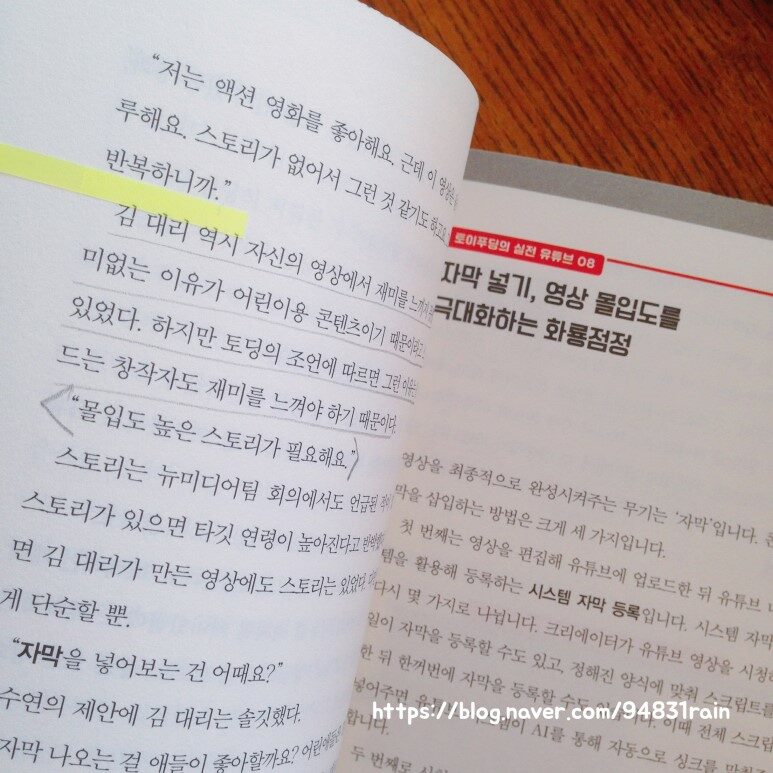 “저는 액션 영화를 좋아해요. 근데 이 영상은
루해요. 스토리가 없어서 그런 것 같기도 하고요.
반복하니까.”
김 대리 역시 자신의 영상에서 재미를 느끼지
미없는 이유가 어린이용 콘텐츠이기 때문이라고
있었다. 하지만 토딩의 조언에 따르면 그런 이유는
드는 창작자도 재미를 느껴야 하기 때문이다.
“몰입도 높은 스토리가 필요해요.”
스토리는 뉴미디어팀 회의에서도 언급된 적이
스토리가 있으면 타깃 연령이 높아진다고
면 김 대리가 만든 영상에도 스토리는 있었다.
게 단순할 뿐.
“자막을 넣어보는 건 어때요?”
수연의 제안에 김 대리는 솔깃했다.
자막 나오는 걸 애들이 좋아할까요? 어린애들
토이푸딩의 실전 유튜브 08
자막 넣기, 영상 몰입도를
극대화하는 화룡점정
영상을 최종적으로 완성시켜주는 무기는 ‘자막’입니다.
막을 삽입하는 방법은 크게 세 가지입니다.
첫 번째는 영상을 편집해 유튜브에 업로드한 뒤 유튜브
템을 활용해 등록하는 시스템 자막 등록입니다. 시스템 자막
다시 몇 가지로 나뉩니다. 크리에이터가 유튜브 영상을 시청하
일이 자막을 등록할 수도 있고, 정해진 양식에 맞춰 스크립트를
한 뒤 한꺼번에 자막을 등록할 수도 이때 전체 스크립
넣어주면 AI를 통해 자동으로 싱크를 맞춰
합니다.
두 번째로
https://blog.naver.com/94831rain